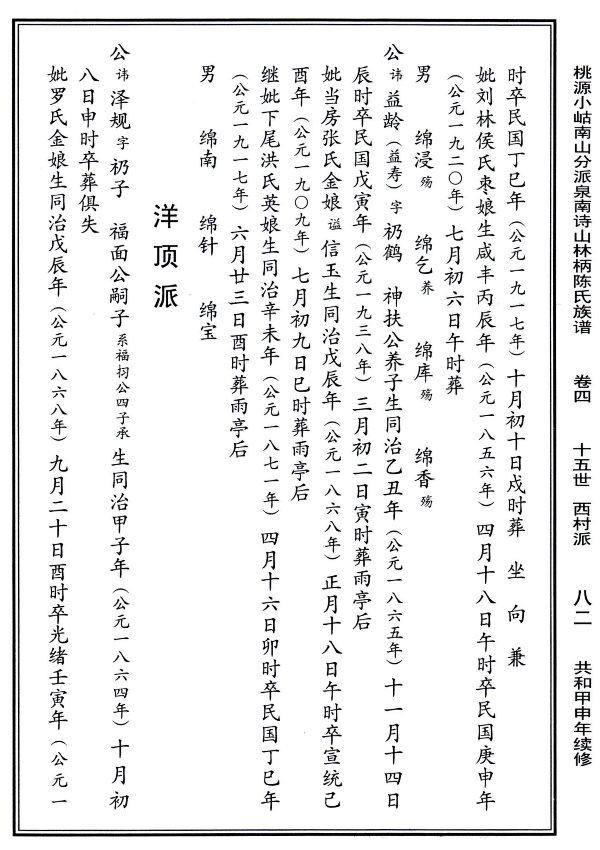 桃源小岵南山分派泉南诗山林柄陈氏族谱 卷四 十五世 西村派 八二 共和甲申年续修
时卒民国丁巳年（公元一九一七年）十月初十日戍时葬 坐 向 兼
妣刘林侯氏枣娘生咸丰丙辰年（公元一八五六年）四月十八日午时卒民国庚申年
（公元一九二〇年）七月初六日午时葬
男 绵浸殇 绵乞养 绵库殇 绵香殇
公讳益龄（益寿）字礽鹤 神扶公养子生同治乙丑年（公元一八六五年）十一月十四日
辰时卒民国戊寅年（公元一九三八年）三月初二日寅时葬雨亭后
妣当房张氏金娘谥信玉生同治戊辰年（公元一八六八年）正月十八日午时卒宣统己
酉年（公元一九〇九年）七月初九日巳时葬雨亭后
继妣下尾洪氏英娘生同治辛未年（公元一八七一年）四月十六日卯时卒民国丁巳年
（公元一九一七年）六月廿三日酉时葬雨亭后
男 绵南 绵针 绵宝
洋顶派
公讳泽规字礽子 福面公嗣子系福㧕公四子承生同治甲子年（公元一八六四年）十月初
八日申时卒葬俱失
妣罗氏金娘生同治戊辰年（公元一八六八年）九月二十日酉时卒光绪壬寅年（公元一